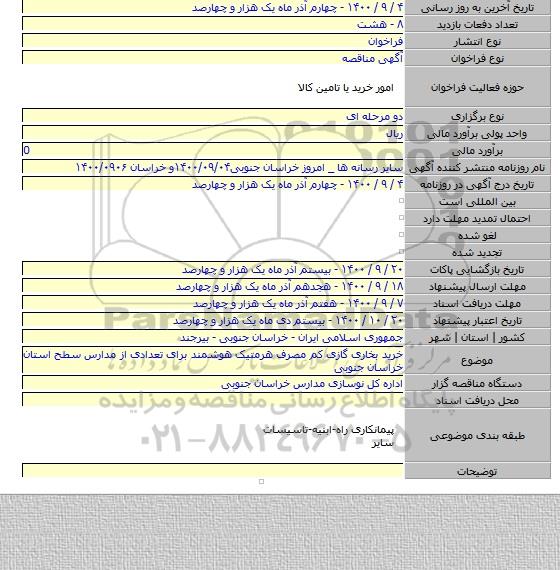 تاریخ آخرین به روز رسانی ۴ / ۹ / ۱۴۰۰ - چهارم آذر ماه یک هزار و چهارصد
تعداد دفعات بازدید ۸ - هشت
نوع انتشار فراخوان
نوع فراخوان آگهی مناقصه
حوزه فعالیت فراخوان امور خرید یا تامین کالا
نوع برگزاری دو مرحله ای
واحد پولی برآورد مالی ریال
برآورد مالی 0
نام روزنامه منتشر کننده آگهی سایر رسانه ها _ امروز خراسان جنوبی۱۴۰۰/۰۹/۰۴و خراسان ۱۴۰۰/۰۹۰۶
تاریخ درج آگهی در روزنامه ۴ / ۹ / ۱۴۰۰ - چهارم آذر ماه یک هزار و چهارصد
بین المللی است
احتمال تمدید مهلت دارد
لغو شده
تجدید شده
تاریخ بازگشایی پاکات ۲۰ / ۹ / ۱۴۰۰ - بیستم آذر ماه یک هزار و چهارصد
مهلت ارسال پیشنهاد ۱۸ / ۹ / ۱۴۰۰ - هجدهم آذر ماه یک هزار و چهارصد
مهلت دریافت اسناد ۷ / ۹ / ۱۴۰۰ - هفتم آذر ماه یک هزار و چهارصد
تاریخ اعتبار پیشنهاد ۲۰ / ۱۰ / ۱۴۰۰ - بیستم دی ماه یک هزار و چهارصد
کشور | استان | شهر جمهوری اسلامی ایران - خراسان جنوبی - بیرجند
موضوع خرید بخاری گازی کم مصرف هرمتیک هوشمند برای تعدادی از مدارس سطح استان
خراسان جنوبی
دستگاه مناقصه گزار اداره کل نوسازی مدارس خراسان جنوبی
محل دریافت اسناد
طبقه بندی موضوعی پیمانکاری راه-ابنیه-تاسیسات
سایر
توضیحات
پایگاه اطلاع رسانی مناقصه و مزایده
۰۲۱-۸۸۳۴۹۶۷۰-۵